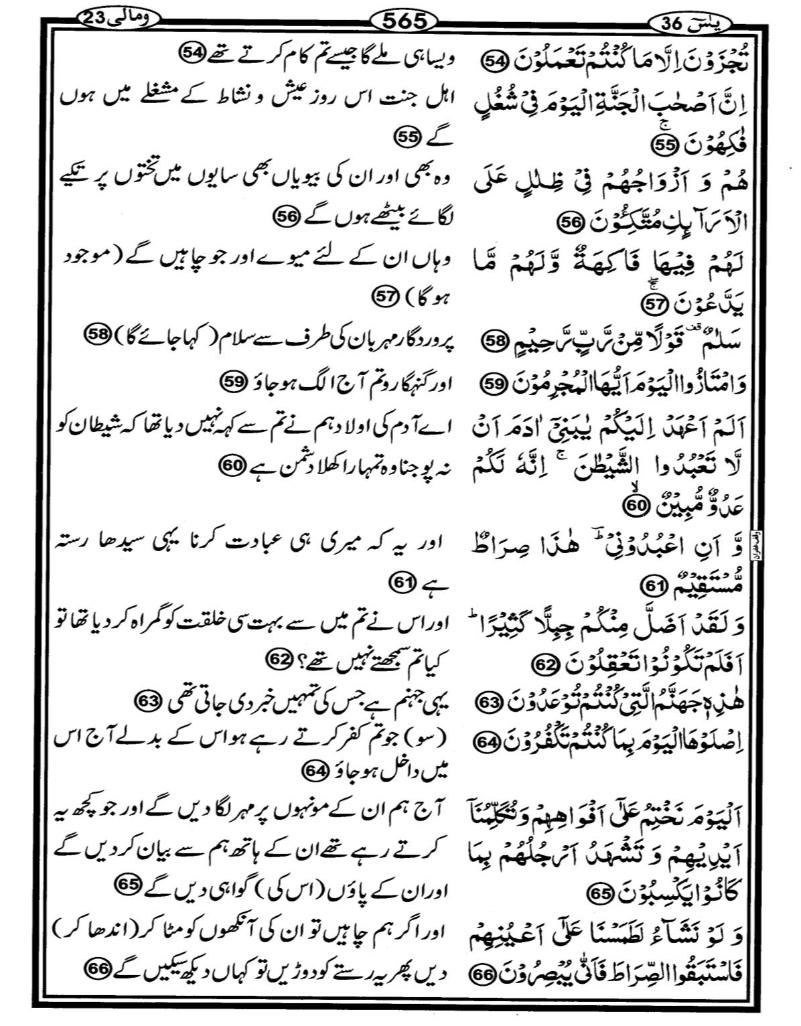 یٰسٓ 36
565
ومالی 23
تُجْزَوْنَ اِلَّا مَا كُنْتُمْ تَعْمَلُوْنَ 54
اِنَّ اَصْحٰبَ الْجَنَّةِ الْيَوْمَ فِيْ شُغُلٍ
فٰكِهُوْنَ ۚ 55
هُمْ وَ اَزْوَاجُهُمْ فِيْ ظِلٰلٍ عَلَى
الْاَرَآىِٕكِ مُتَّكِـُٔوْنَ 56
لَهُمْ فِيْهَا فَاكِهَةٌ وَّلَهُمْ مَّا
يَدَّعُوْنَ ۚ 57
سَلٰمٌ ۫ قَوْلًا مِّنْ رَّبٍّ رَّحِيْمٍ 58
وَامْتَازُوا الْيَوْمَ اَيُّهَا الْمُجْرِمُوْنَ 59
اَلَمْ اَعْهَدْ اِلَيْكُمْ يٰبَنِيْٓ اٰدَمَ اَنْ
لَّا تَعْبُدُوا الشَّيْطٰنَ ۚ اِنَّهٗ لَكُمْ
عَدُوٌّ مُّبِيْنٌ ۙ 60
وَّ اَنِ اعْبُدُوْنِيْ ؕ هٰذَا صِرَاطٌ
مُّسْتَقِيْمٌ 61
وَ لَقَدْ اَضَلَّ مِنْكُمْ جِبِلًّا كَثِيْرًا ؕ
اَفَلَمْ تَكُوْنُوْا تَعْقِلُوْنَ 62
هٰذِهٖ جَهَنَّمُ الَّتِيْ كُنْتُمْ تُوْعَدُوْنَ 63
اِصْلَوْهَا الْيَوْمَ بِمَا كُنْتُمْ تَكْفُرُوْنَ 64
اَلْيَوْمَ نَخْتِمُ عَلٰٓى اَفْوَاهِهِمْ وَ تُكَلِّمُنَآ
اَيْدِيْهِمْ وَ تَشْهَدُ اَرْجُلُهُمْ بِمَا
كَانُوْا يَكْسِبُوْنَ 65
وَ لَوْ نَشَآءُ لَطَمَسْنَا عَلٰٓى اَعْيُنِهِمْ
فَاسْتَبَقُوا الصِّرَاطَ فَاَنّٰى يُبْصِرُوْنَ 66
ویسا ہی ملے گا جیسے تم کام کرتے تھے 54
اہل جنت اس روز عیش و نشاط کے مشغلے میں ہوں
گے 55
وہ بھی اور ان کی بیویاں بھی سایوں میں تختوں پر تکیے
لگائے بیٹھے ہوں گے 56
وہاں ان کے لئے میوے اور جو چاہیں گے (موجود
ہوگا) 57
پروردگار مہربان کی طرف سے سلام (کہا جائے گا) 58
اور گنہگارو تم آج الگ ہو جاؤ 59
اے آدم کی اولاد ہم نے تم سے کہہ نہیں دیا تھا کہ شیطان کو
نہ پوجنا وہ تمہارا کھلا دشمن ہے 60
اور یہ کہ میری ہی عبادت کرنا یہی سیدھا رستہ
ہے 61
اور اس نے تم میں سے بہت سی خلقت کو گمراہ کر دیا تھا تو
کیا تم سمجھتے نہیں تھے؟ 62
یہی جہنم ہے جس کی تمہیں خبر دی جاتی تھی 63
(سو) جو تم کفر کرتے رہے ہو اس کے بدلے آج اس
میں داخل ہو جاؤ 64
آج ہم ان کے مونہوں پر مہر لگا دیں گے اور جو کچھ یہ
کرتے رہے تھے ان کے ہاتھ ہم سے بیان کر دیں گے
اور ان کے پاؤں (اس کی) گواہی دیں گے 65
اور اگر ہم چاہیں تو ان کی آنکھوں کو مٹا کر (اندھا کر)
دیں پھر یہ رستے کو دوڑیں تو کہاں دیکھ سکیں گے 66
وقف غفران